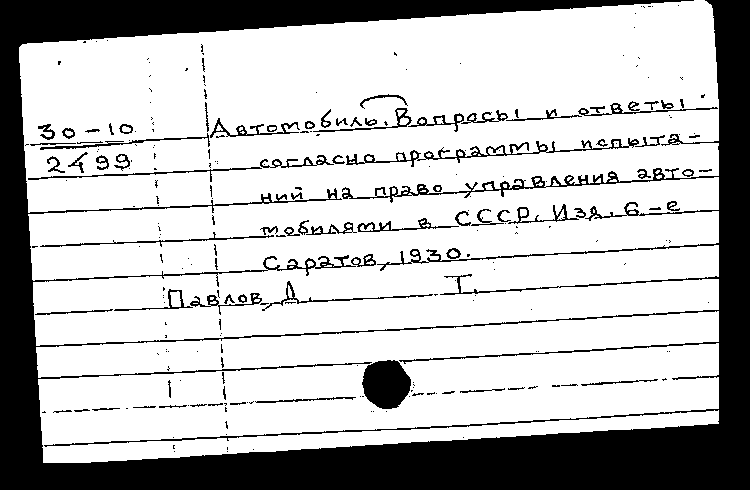 30-10
2499
Автомобиль. Вопросы и ответы
согласно программы испыта-
ний на право управления авто-
мобилями в СССР. Изд. 6-е
Саратов, 1930.
Павлов, Д. Т.